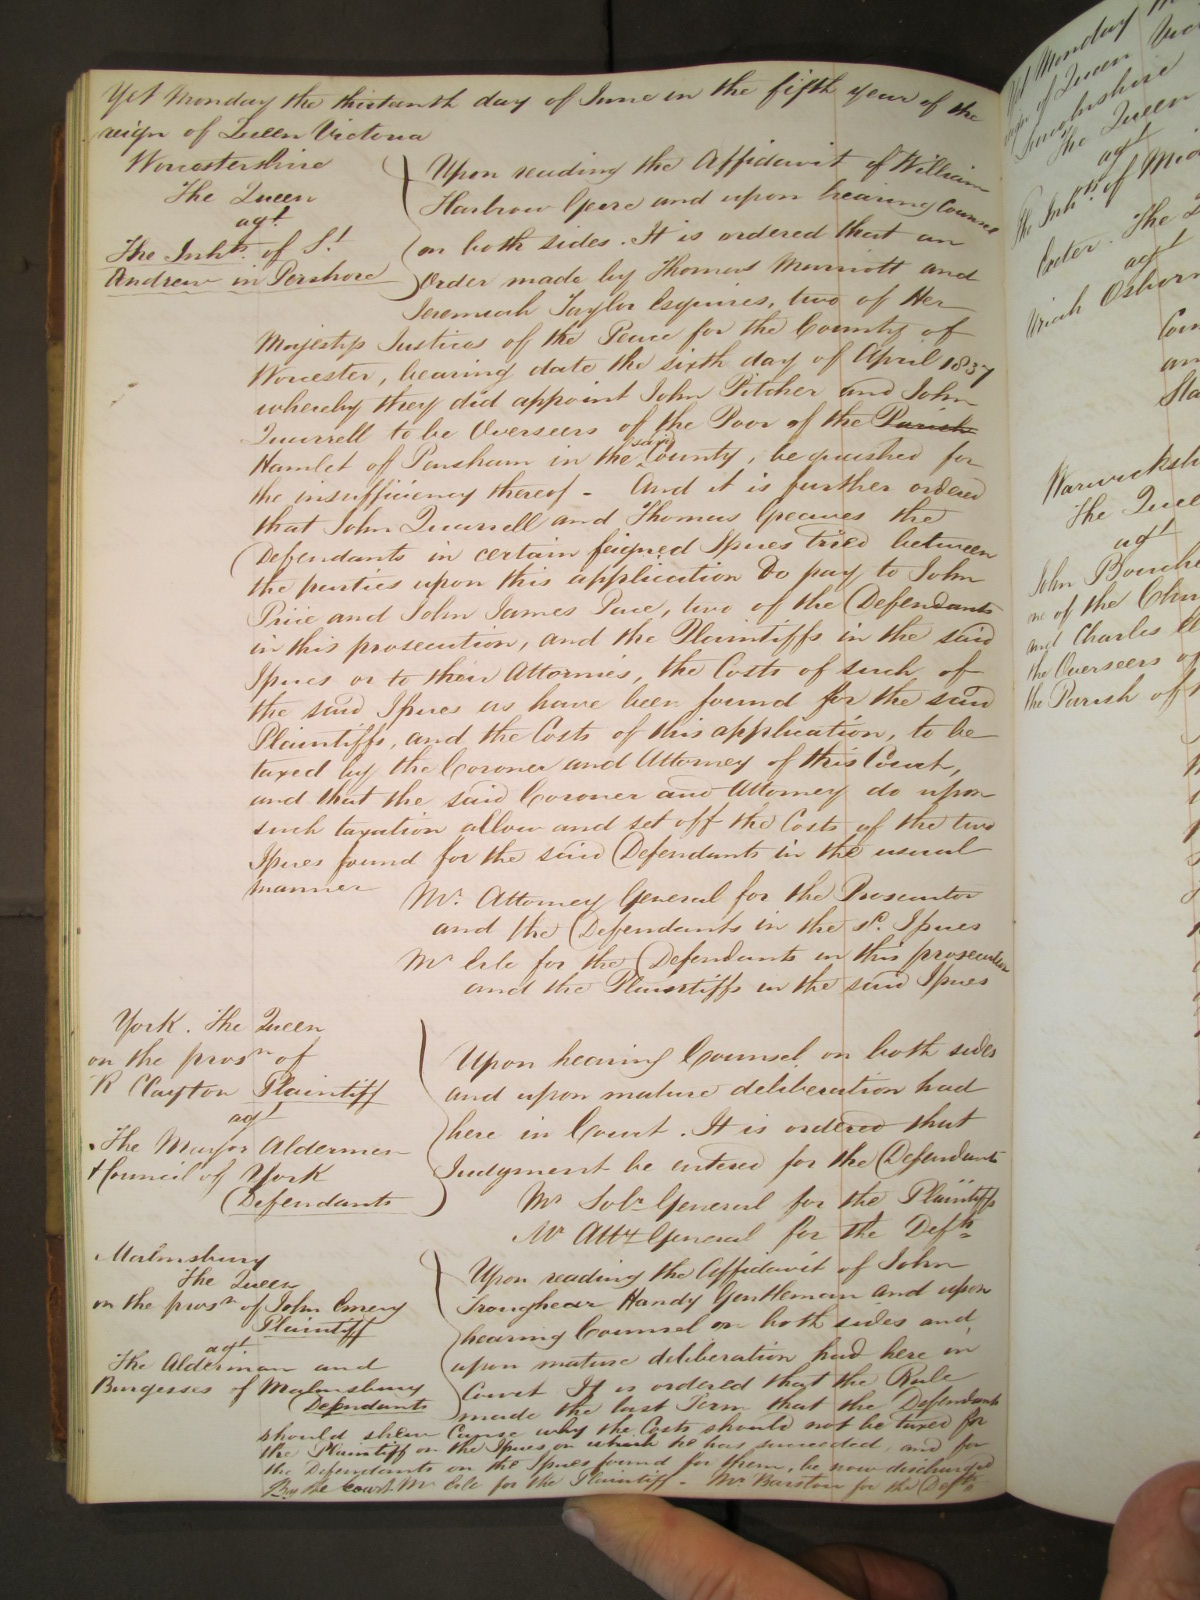 Yet Monday the thirteenth day of June in the fifth year of the
reign of Queen Victoria
Worcestershire
The Queen
agt
The Inhts. of St
Andrew in Pershore
Upon reading the Affidavit of William
Harbrow and upon hearing Counsel
on both sides. It is ordered that an
Order made by Thomas Marriott and
Jeremiah Taylor Esquires, two of Her
Majestys Justices of the Peace for the County of
Worcester, bearing date the sixth day of April 1837
whereby they did appoint John Pitcher and John
Quarrell to be Overseers of the Poor of the Parish
Hamlet of Pensham in the said County, be quashed for
the insufficiency thereof - And it is further ordered
that John Quarrell and Thomas Greaves the
Defendants in certain feigned Issues tried between
the parties upon this application Do pay to John
Price and John James Pace, two of the Defendants
in this prosecution, and the Plaintiffs in the said
Issues or to their Attornies, the Costs of such of
the said Issues as have been found for the said
Plaintiffs, and the Costs of this application, to be
taxed by the Coroner and Attorney of this Court,
and that the said Coroner and Attorney do upon
such taxation allow and set off the Costs of the two
Issues found for the said Defendants in the usual
manner
Mr. Attorney General for the Prosecutor
and the Defendants in the sd. Issues
Mr Erle for the Defendants in this prosecution
and the Plaintiffs in the said Issues
York. The Queen
on the prosn of
R Clayton Plaintiff
agt
The Mayor Aldermen
& Council of York
Defendants
Upon hearing Counsel on both sides
and upon mature deliberation had
here in Court. It is ordered that
Judgment be entered for the Defendants
Mr Solr General for the Plaintiffs
Mr Atty General for the Defts
Malmsbury
The Queen
on the prosn of John Emery
Plaintiff
agt
The Alderman and
Burgesses of Malmsbury
Defendants
Upon reading the Affidavit of John
Troughear Handy Gentleman and upon
hearing Counsel on both sides and
upon mature deliberation had here in
Court It is ordered that the Rule
made the last Term that the Defendants
should shew Cause why the Costs should not be taxed for
the Plaintiff on the Issues on which he has succeeded, and for
the Defendants on the Issues found for them, be now discharged
By the Court Mr Erle for the Plaintiff - Mr Barstow for the Defts
Yet Monday
reign of Queen
The Queen
agt
The Inhts. of
Exeter. The
agt
Uriah Osborn
Warwickshi
The Quee
agt
John
one of the Chu
and Charles
the Overseers of
the Parish of